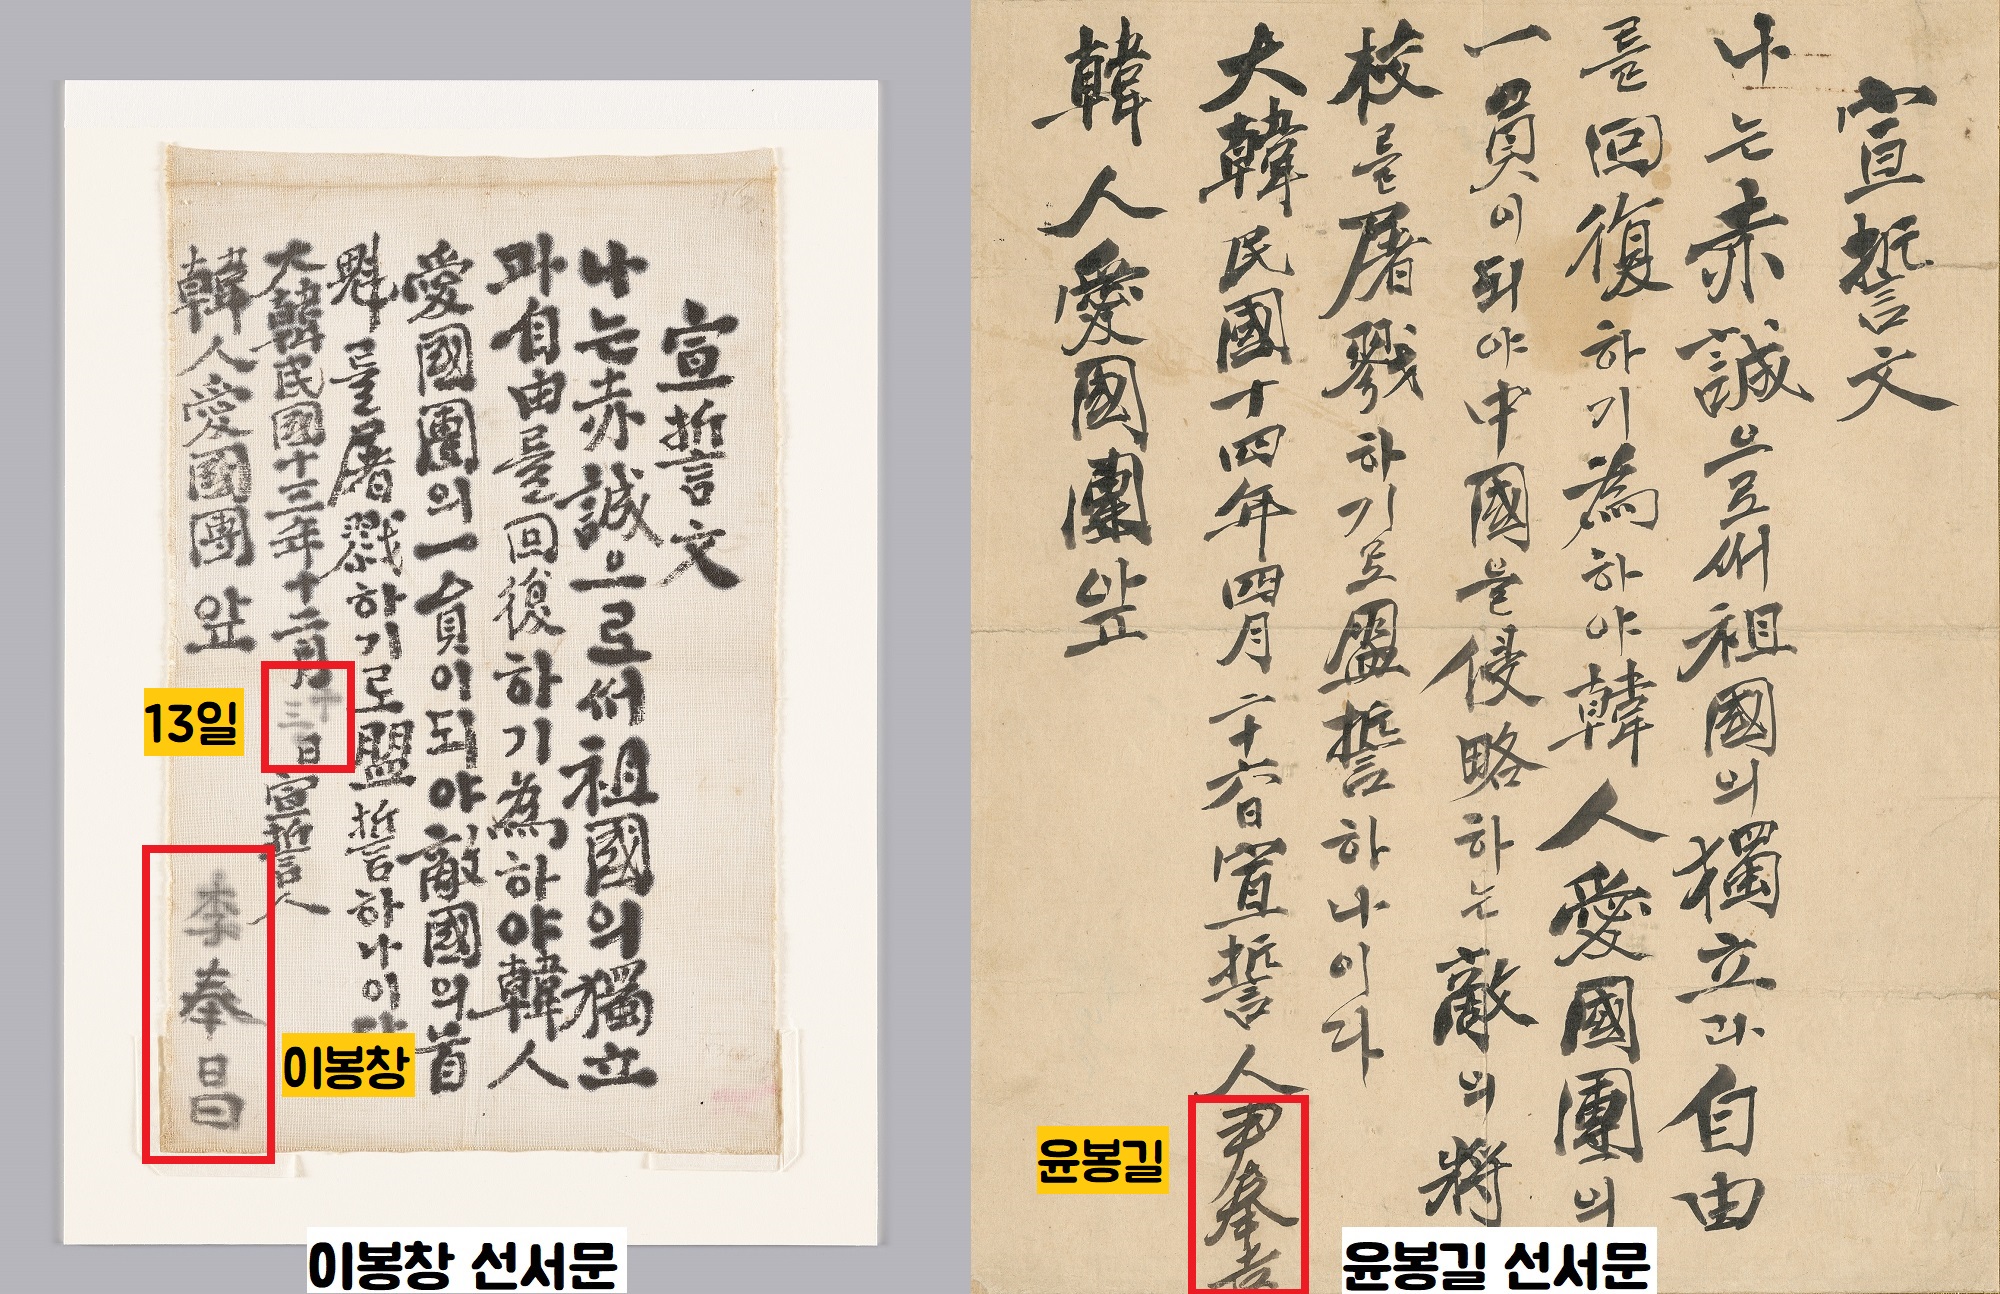 宣誓文
나는赤誠으로써祖國의獨立
과自由를回復하기爲하야韓人
愛國團의一員이되야敵國의首
魁를屠戮하기로盟誓하나이다
大韓民國十三年十二月十三日宣誓人
韓人愛國團앞
李奉昌
13일
이봉창
이봉창 선서문
宣誓文
나는赤誠으로써祖國의獨立과自由
를回復하기爲하야韓人愛國團의
一員이되야中國을侵略하는敵의將
校를屠戮하기로盟誓하나이다
大韓民國十四年四月二十六日宣誓人尹奉吉
韓人愛國團앞
윤봉길
윤봉길 선서문